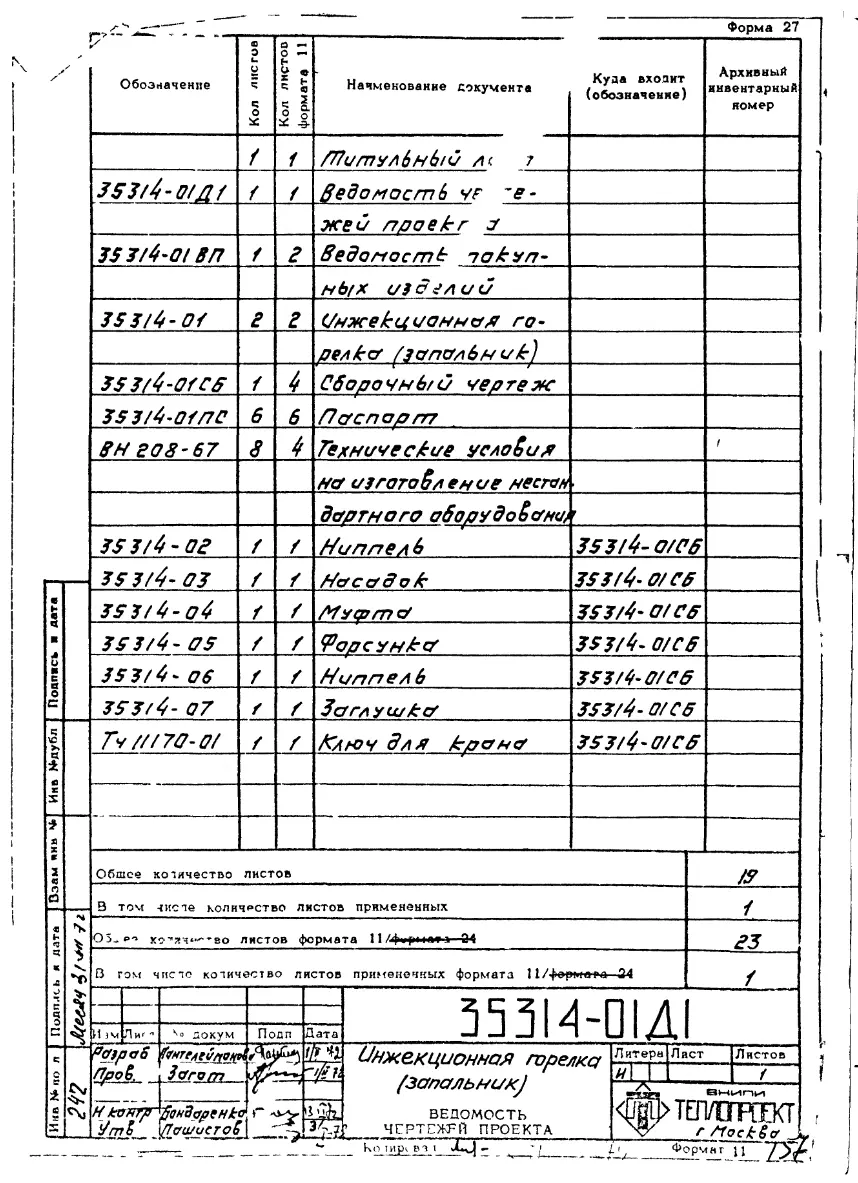 Форма 27
Обозначение
Кол листов
Кол листов формата 11
Наименование документа
Куда входит (обозначение)
Архивный инвентарный номер
1 1 Титульный
35314-01Д1 1 1 Ведомость
жей
35314-01ВП 1 2 Ведомость покуп-
ных изделий
35314-01 2 2 Инжекционная го-
релка (запальник)
35314-01СБ 1 4 Сборочный чертеж
35314-01ПС 6 6 Паспорт
ВН 208-67 8 4 Технические условия
на изготовление нестан-
дартного оборудования
35314-02 1 1 Ниппель 35314-01СБ
35314-03 1 1 Насадок 35314-01СБ
35314-04 1 1 Муфта 35314-01СБ
35314-05 1 1 Форсунка 35314-01СБ
35314-06 1 1 Ниппель 35314-01СБ
35314-07 1 1 Заглушка 35314-01СБ
Тч 11170-01 1 1 Ключ для крана 35314-01СБ
Общее количество листов 19
В том числе количество листов примененных 1
количество листов формата 11/формата 24 23
В том числе количество листов примененных формата 11/формата 24 1
Подпись и дата
Инв №дубл
Взам инв №
Подпись и дата
Инв № по л
242
35314-01Д1
Изм Лист № докум Подп Дата
Разраб
Пров. Загот
Н контр Бондаренко
Утв Пашистов
Инжекционная горелка
(запальник)
ВЕДОМОСТЬ
ЧЕРТЕЖЕЙ ПРОЕКТА
Литера Лист Листов
И 1
ВНИПИ
ТЕПЛОПРОЕКТ
г Москва
Копировал
Формат 11
157